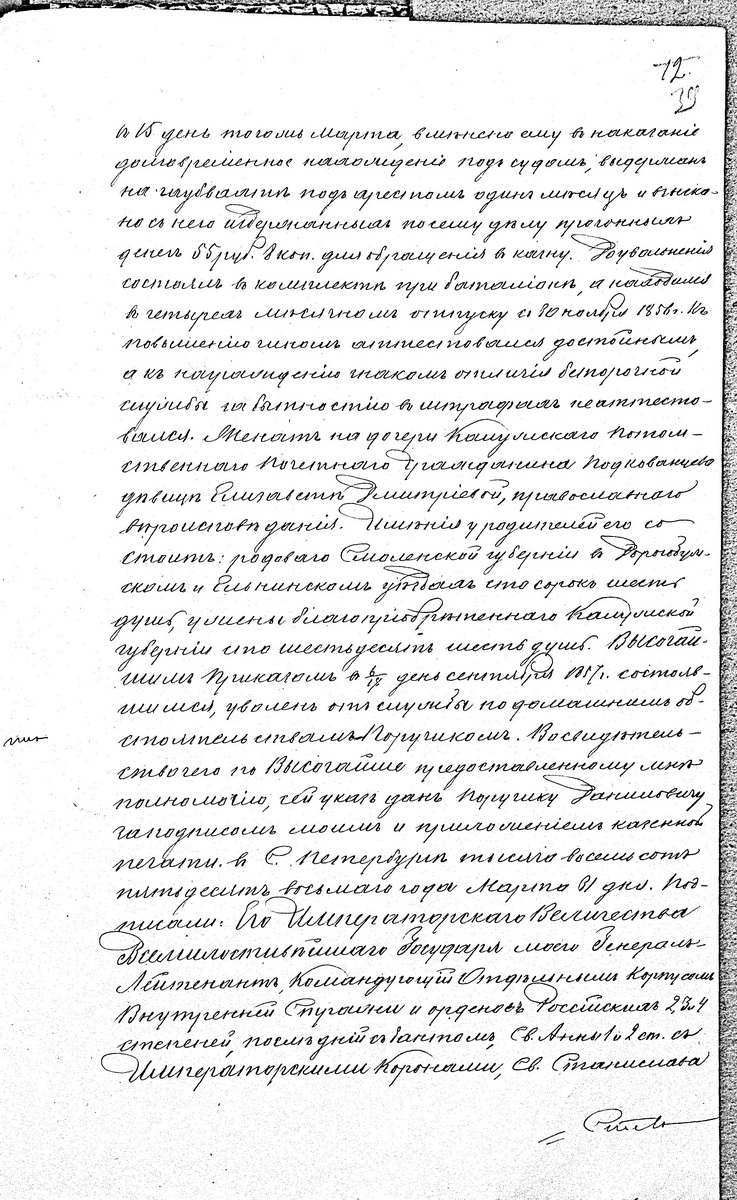 72.
39
въ 15 день того мѣ Марта, вмѣнено ему в наказаніе
долговременное нахожденіе подъ судомъ, выдержанъ
на гаубвахтѣ подъ арестомъ одинъ мѣсяцъ и взыска-
но съ него издержанныхъ по сему дѣлу прогонныхъ
денегъ 55 руб. 8 коп. для обращенія в казну. До увольненія
состоялъ в комплектѣ при баталіонѣ, а находился
в четырехъ мѣсячномъ отпуску съ 30 ноября 1856 г. Къ
повышенію чиномъ аттестовался достойнымъ,
а къ награжденію знакомъ отличія безпорочной
службы за бытностію в штрафахъ не аттесто-
вался. Женатъ на дочери Калужскаго Потом-
ственнаго Почетнаго Гражданина Подкованцева
дѣвицѣ Елизаветѣ Дмитріевой, православнаго
вѣроисповѣданія. Имѣнія у родителей его со
стоитъ: родоваго Смоленской губерніи в Дорогобуж-
скомъ и Ельнинскомъ уѣздахъ сто сорокъ шесть
душъ, у жены благопріобрѣтеннаго Калужской
губерніи сто шестьдесятъ шесть душъ. Высочай-
шимъ Приказомъ въ день сентября 1857 г. состояв-
шимся, уволенъ отъ службы по домашнимъ об-
стоятельствамъ Поручикомъ. Во свидѣтель-
ство чего по Высочайше предоставленному мнѣ
полномочію, сей указъ данъ Поручику Даниловичу
за подписомъ моимъ и приложеніемъ казенной
печати. в С. Петербургѣ тысяча восемьсотъ
пятьдесятъ восьмаго года Марта 31 дня. Под-
писали: Его Императорскаго Величества
Всемилостивѣйшаго Государя моего Генералъ-
Лейтенантъ, Командующій Отдѣльнымъ Корпусомъ
Внутренней Стражи и орденовъ Россійскихъ 2, 3 и 4
степеней, послѣдній съ бантомъ, Св. Анны 1 и 2 ст. съ
Императорскими Коронами, Св. Станислава